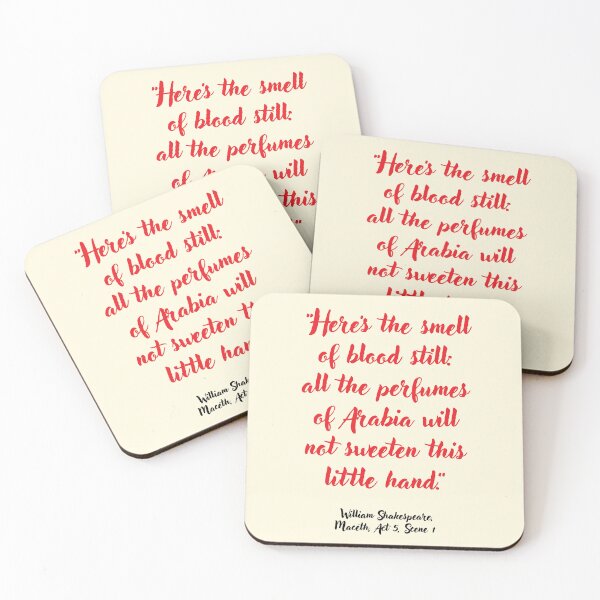 "Here's the smell
of blood still:
all the perfumes
of will
this
"Here's the smell
of blood still:
all the perfumes
of Arabia will
not sweeten this
little
"Here's the smell
of blood still:
all the perfumes
of Arabia will
not sweeten
little hand
William
Maceth, Act
"Here's the smell
of blood still:
all the perfumes
of Arabia will
not sweeten this
little hand."
William Shakespeare,
Maceth, Act 5, Scene 1